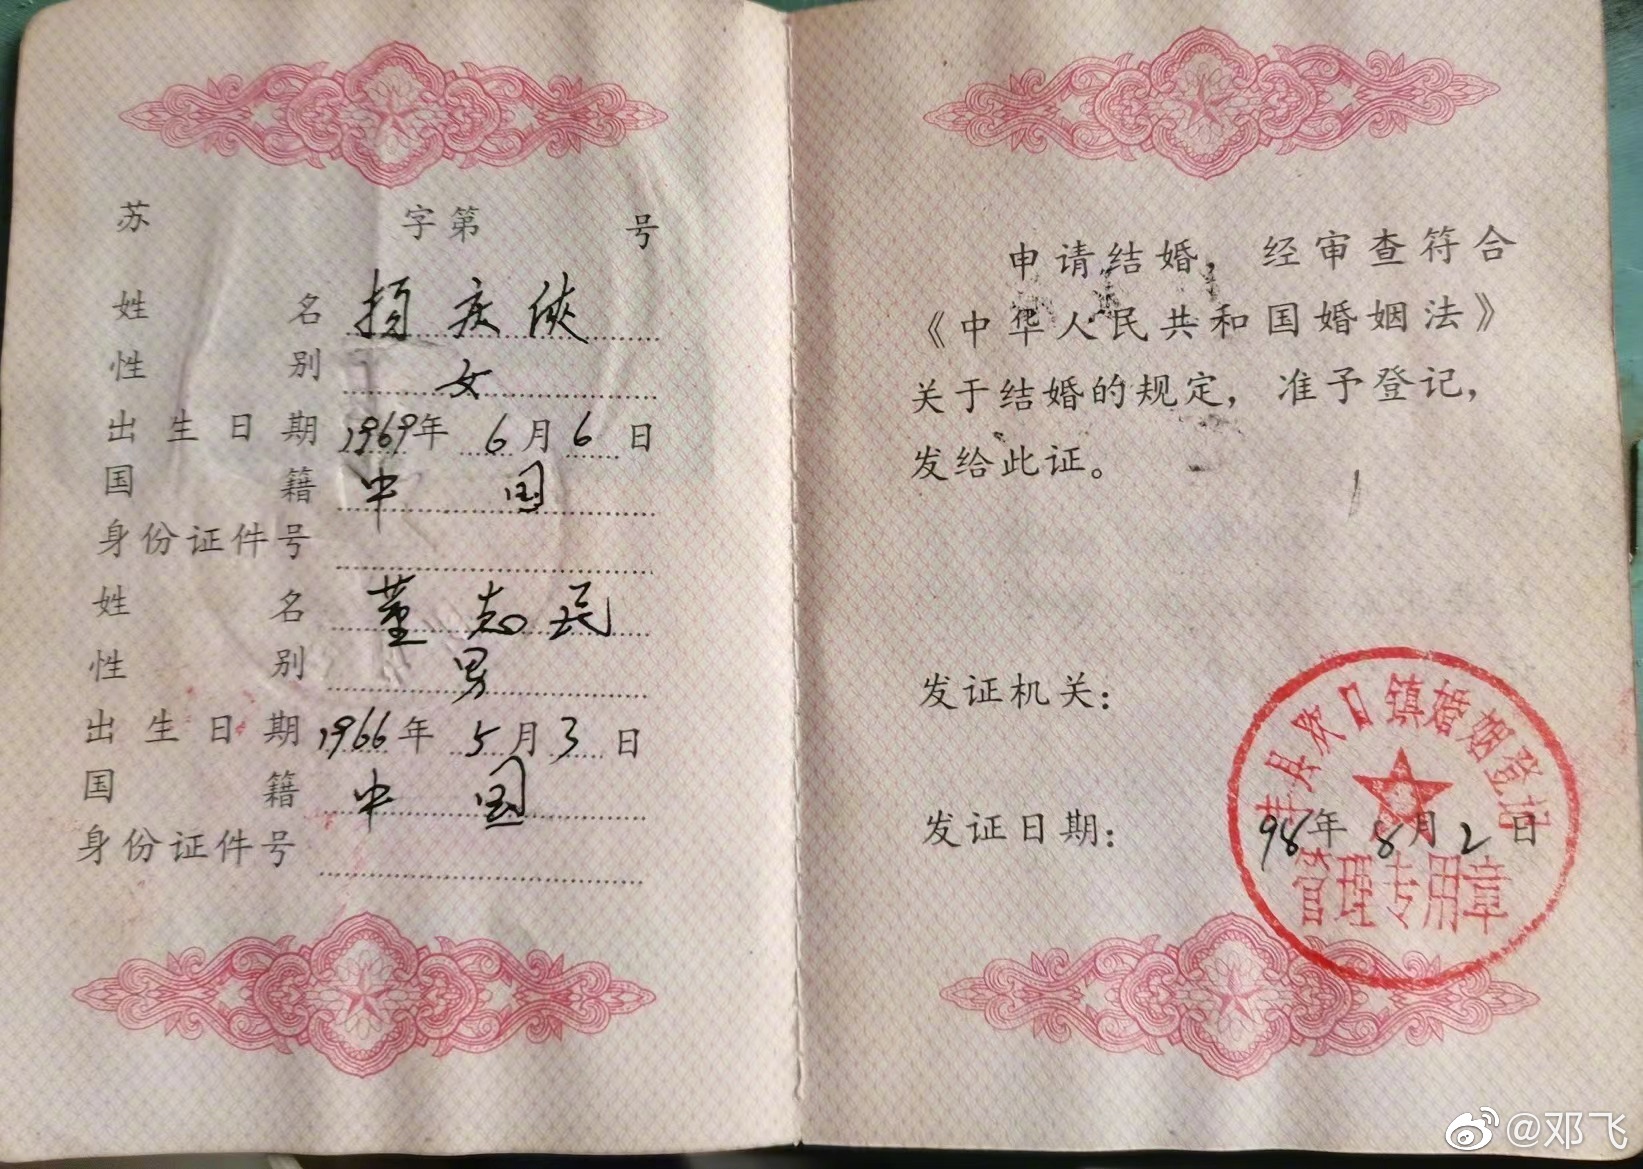 苏 字第 号
姓 名 杨庆侠
性 别 女
出生日期 1969年 6月6日
国 籍 中国
身份证件号
姓 名 董志民
性 别 男
出生日期 1966年 5月3日
国 籍 中国
身份证件号
申请结婚，经审查符合
《中华人民共和国婚姻法》
关于结婚的规定，准予登记，
发给此证。
发证机关：
丰县欢口镇婚姻登记
发证日期： 98年 8月2日
管理专用章
@邓飞